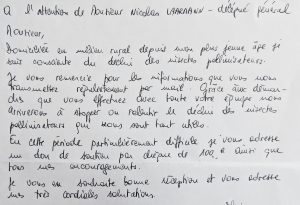 à l'attention de Monsieur Nicolas LAARMAN - délégué général
Monsieur,
Domiciliée en milieu rural depuis mon plus jeune âge je
suis consciente du déclin des insectes pollinisateurs.
Je vous remercie pour les informations que vous nous
transmettez régulièrement par mail. Grâce aux démar-
ches que vous effectuez avec toute votre équipe nous
arriverons à stopper ou ralentir le déclin des insectes
pollinisateurs qui nous sont tant utiles.
En cette période particulièrement difficile je vous adresse
un don de soutien par chèque de 100 € ainsi que
tous mes encouragements.
Je vous en souhaite bonne réception et vous adresse
mes très cordiales salutations.